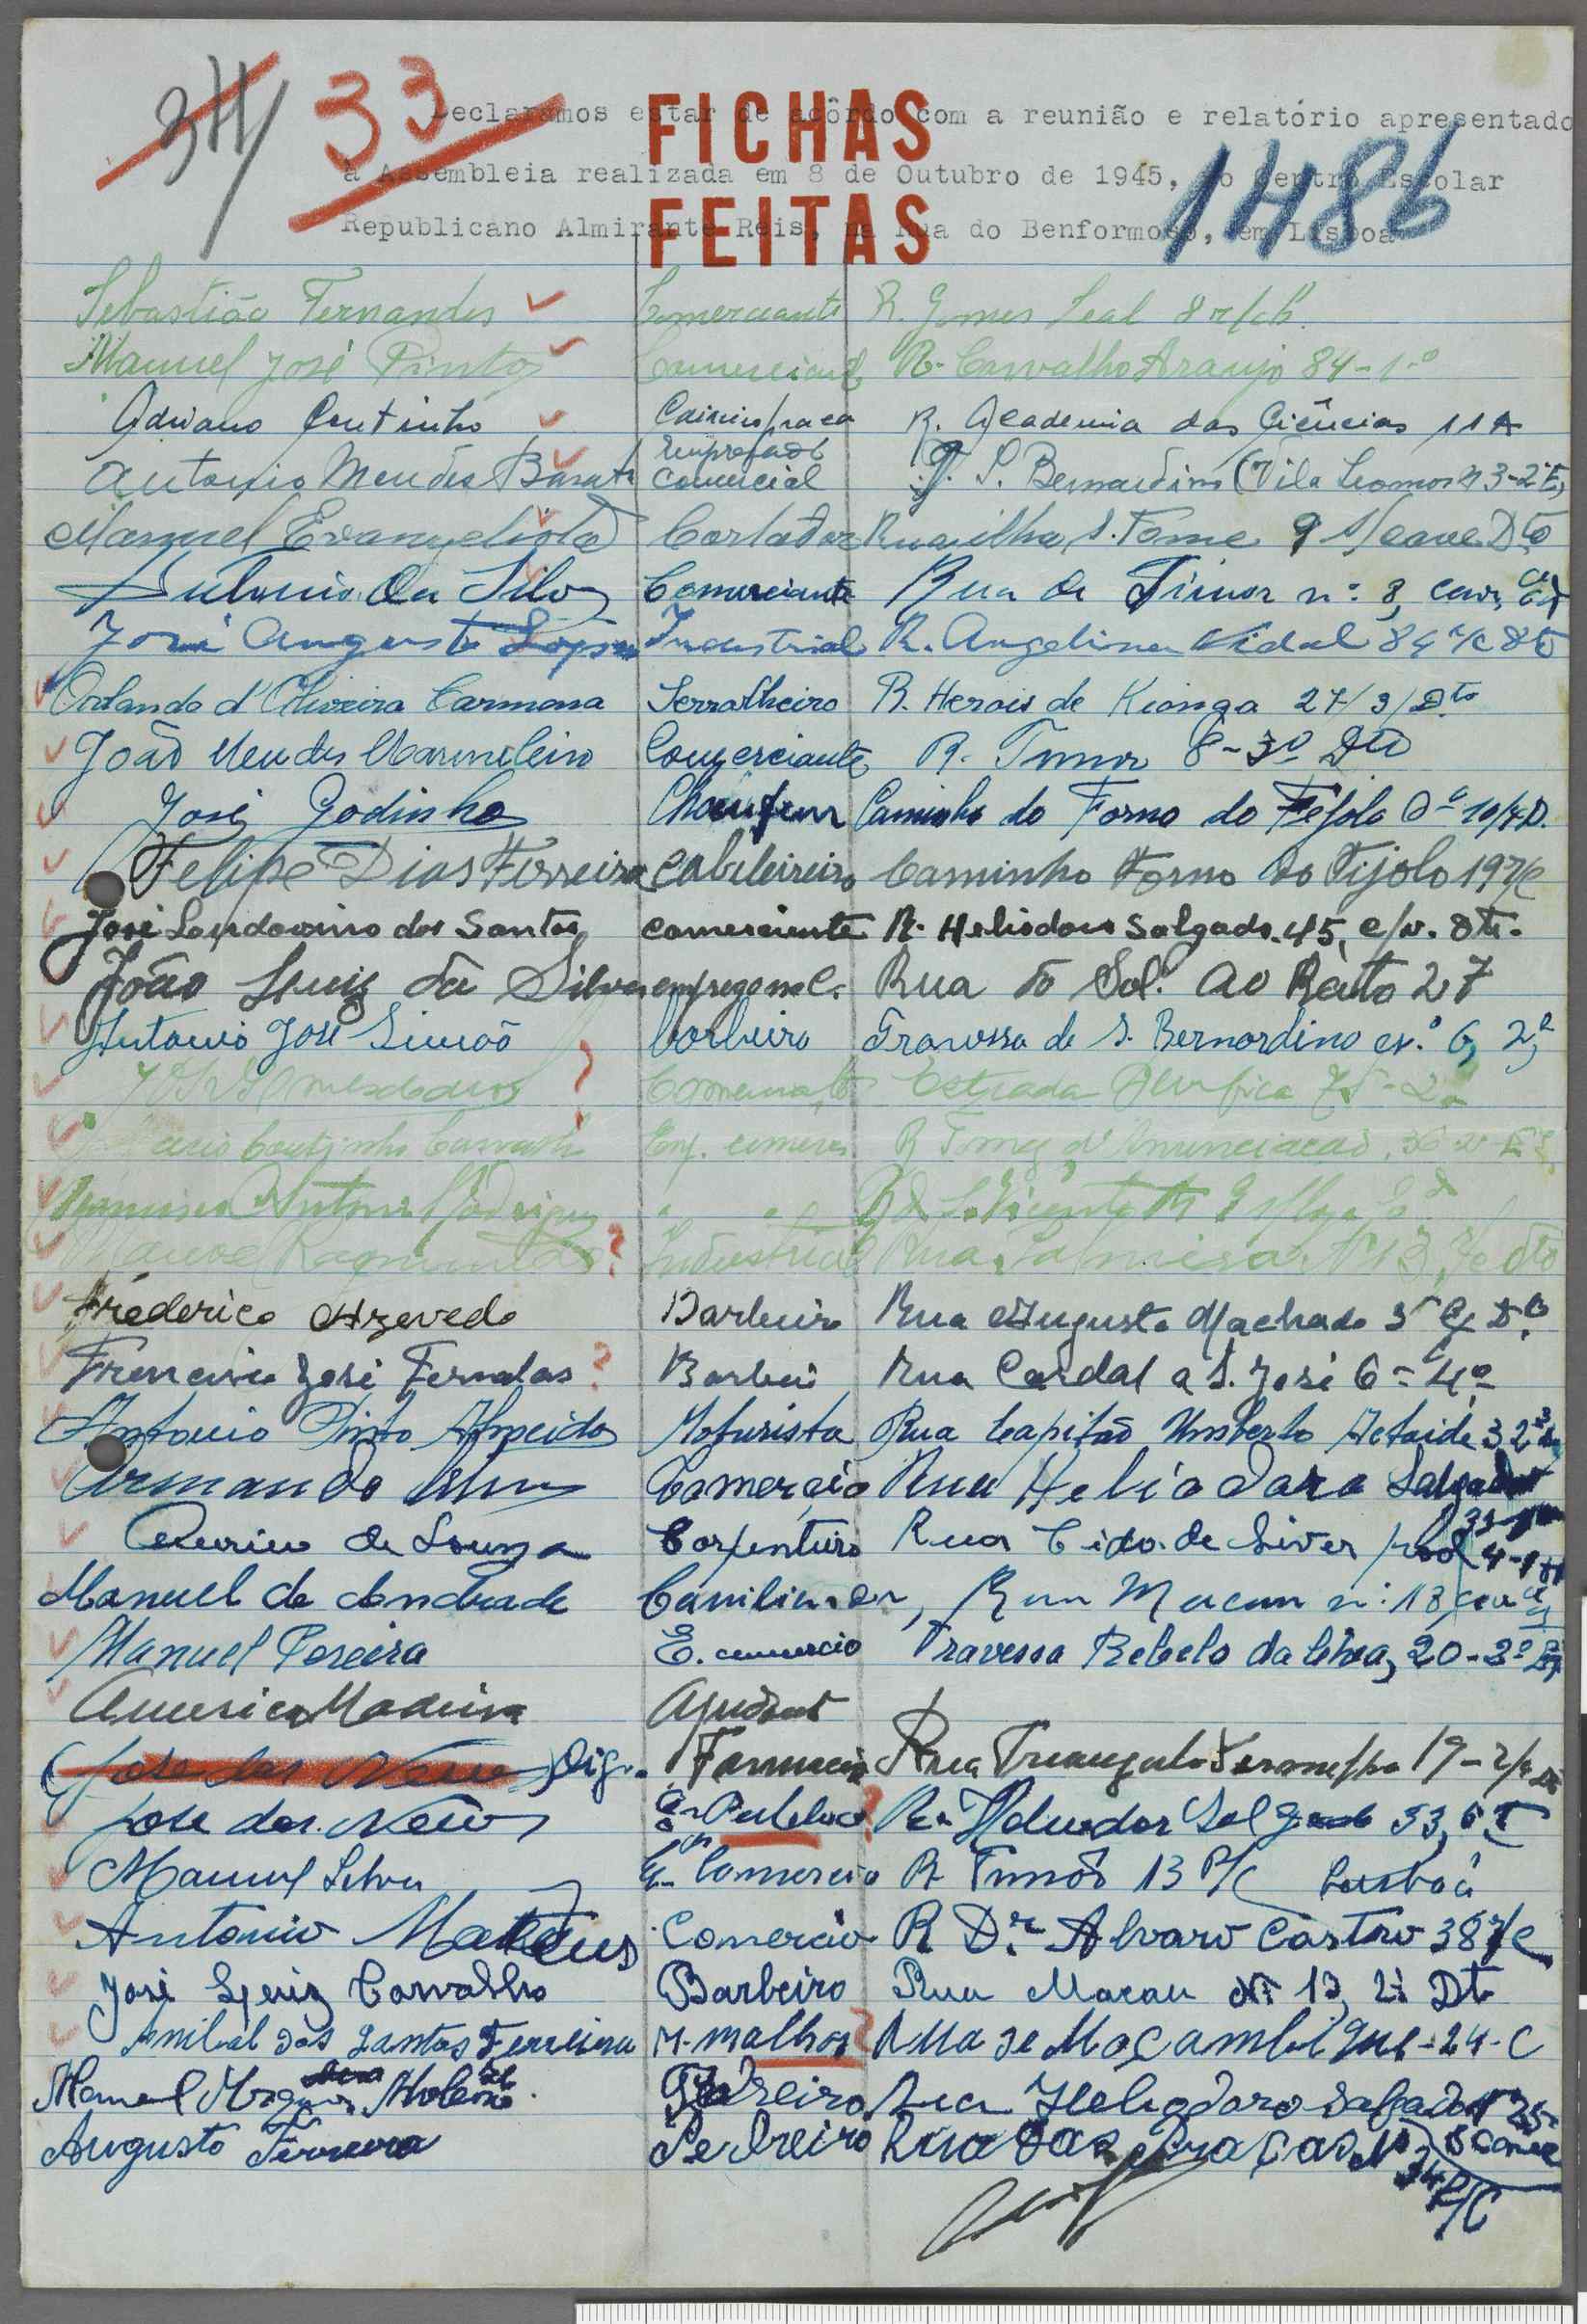 34 33
FICHAS
FEITAS
1486
Declaramos estar de acôrdo com a reunião e relatório apresentado
à Assembleia realizada em 8 de Outubro de 1945, no Centro Escolar
Republicano Almirante Reis, na Rua do Benformoso, em Lisboa
Sebastião Fernandes Comerciante R. Gomes Leal 8 r/ch.
Manuel José Pinto Comerciante R. Carvalho Araujo 84-1º
Adriano Coutinho R. Academia das Ciências 11A
Empregado
Antonio Mendes Barata Comercial T. S. Bernardino (Vila 3-2º E)
Manuel Evangelista Cortador Rua ilha S. Tome 9 Cave Dto
Antonio da Silva Comerciante Rua de Timor nº 8, cave
José Augusto Lopes Industrial R. Angelina Vidal 84 r/c Dto
Orlando d'Oliveira Carmona Serralheiro R. Herois de Kionga 27/3/Dto
João Mendes Marmeleiro Comerciante R. Timor 8-3º Dto
José Godinho Chaufeur Caminho do Forno do Tejolo
Felipe Dias Ferreira Cabeleireiro Caminho Forno do Tijolo 19 r/c
José Landovino dos Santos comerciante R. Heliodoro Salgado. 45, c/v. Dto.
João Luiz da Silva empregado c. Rua do Sol ao Rato 27
Antonio José Simão barbeiro Travessa de S. Bernardino nº 6, 2º
? Comerciante Estrada Benfica
Coutinho Carvalho Emp. comerc. R Tomaz d'Anunciação, 36
Francisco Antonio Rodrigues " " R. de S. Vicente
Manoel ? Industrial Rua Palmira Nº 13, r/c dto
Fréderico Azevedo Barbeiro Rua Augusto Machado 5
Francisco José Fernandes ? Barbeiro Rua Cardal a S. José 6-4º
Antonio Pinto Almeida Motorista Rua Capitão Umberto Ataide 3 2º
Armando Comercio Rua Heliodoro Salgado
Aurico de Sousa Carpinteiro Rua Cida. de Liverpool
Manuel de Andrade Rua Macau nº 13, cave
Manuel Pereira E. comercio Travessa Rebelo da Silva, 20-3º
Americo Madeira Ajudant
José das Neves Farmacia Rua Triangulo Vermelho 19-
José das Neves Publico ? R. Heliodor Salgado 33,
Manuel Silva E. Comercio R Timor 13 R/C Lisboa
Antonio Mateus Comercio R Dr. Alvaro Castro 38 r/c
José Luiz Carvalho Barbeiro Rua Macau Nº 13, 2º Dto
Anibal dos Santos Ferreira M. malhas ? Rua de Moçambique-24-C
Manuel Pedreiro Rua Heliodoro Salgado 25
Augusto Ferreira Pedreiro Rua das Praças Nº
34 R/C